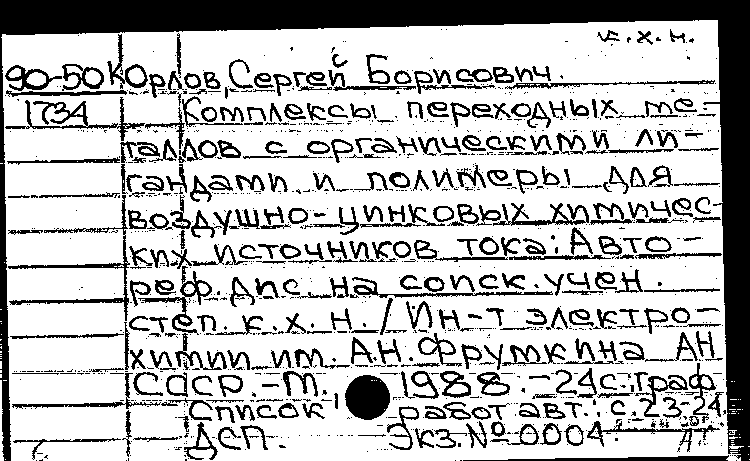 к.х.н.
90-50к Орлов, Сергей Борисович.
1734 Комплексы переходных ме-
таллов с органическими ли-
гандами и полимеры для
воздушно-цинковых химичес-
ких источников тока: Авто-
реф. дис. на соиск. учен.
степ. к.х.н. / Ин-т электро-
химии им. А.Н. Фрумкина АН
СССР. - М. 1988. - 24 с.: граф
Список работ авт.: с. 23-24.
ДСП. Экз. № 0004.